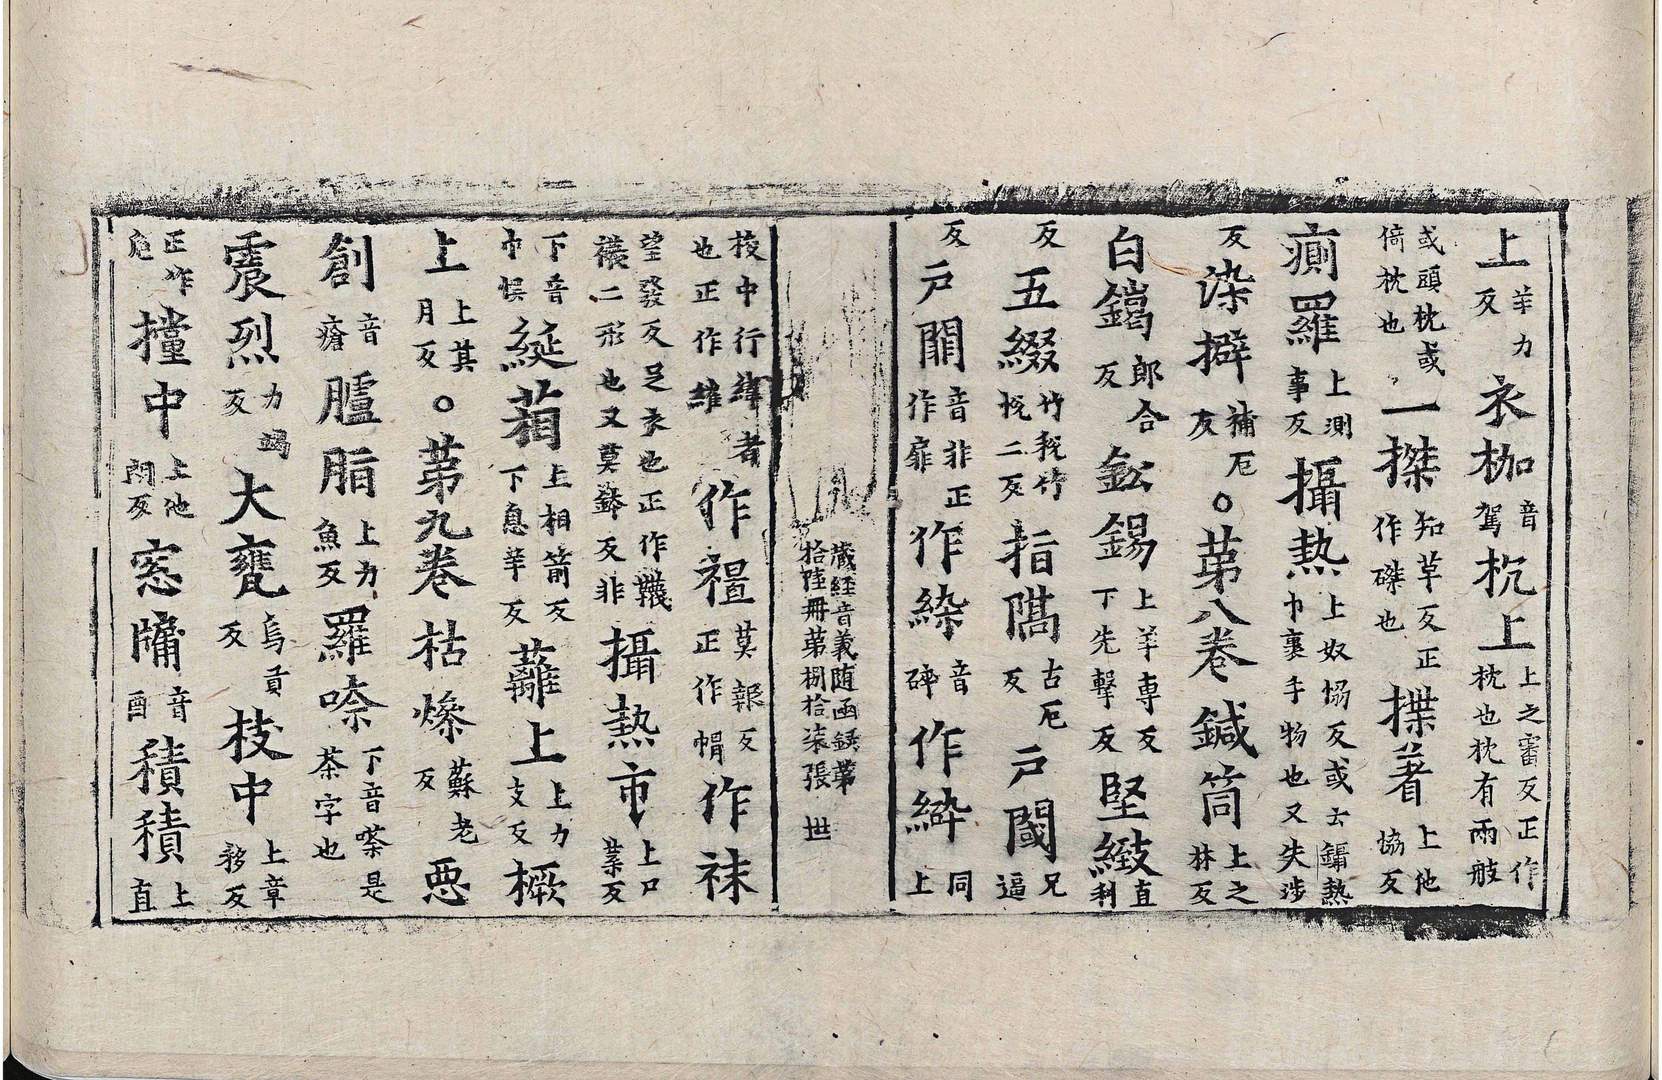 上羊力反衣枷音駕枕上上之審反正作枕也枕有兩舷
或頭枕或倚枕也一搩知革反正作磔也揲著上他協反
廁羅上測事反攝熱上奴協反或云鑷熱巾裹手物也又失涉
反染擗補厄反○第八卷鍼筒上之林反
白鑞郎合反鈆錫上羊專反下先擊反堅緻直利
反五綴竹税竹悦二反指隔古厄反戶閾兄逼
反戶闈音非正作扉作綷音碎作綷同上
藏經音義随函録第拾陸冊第捌拾柒張 世
枝中行緯者也正作維作䙳莫報反正作帽作袜
望發反足衣也正作韈襪二形也又莫鉢反非攝熱巾上口葉反
下音巾悮綎葙上相箭反下息羊反蘺上上力支反橛
上上其月反○第九卷枯燥蘇老反惡
創音瘡臚脂上力魚反羅嗏下音嗏是茶字也
震烈力竭反大甕烏貢反枝中上章移反
正作巵撞中上他悶反窓牖音酉積積上直